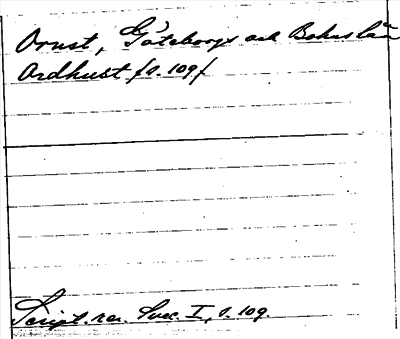 Orust, Göteborgs och Bohuslän
Ordhust /s. 109/
Script. rer. Suec. I, s. 109.